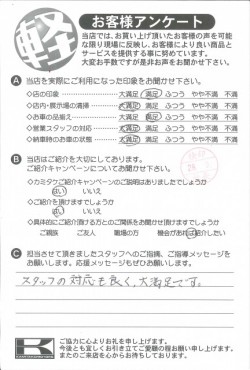 軽
お客様アンケート
当店では、お買い上げ頂いたお客様の声を可能
な限り現場に反映し、お客様により良い商品と
サービスを提供する事に努めています。
大変お手数ですが是非お声をお聞かせ下さい。
A 当店を実際にご利用になった印象をお聞かせ下さい。
◇店の印象 大満足 満足 ふつう やや不満 不満
◇店内・展示場の清掃 大満足 満足 ふつう やや不満 不満
◇お車の品揃え 大満足 満足 ふつう やや不満 不満
◇営業スタッフの対応 大満足 満足 ふつう やや不満 不満
◇納車時のお車の状態 大満足 満足 ふつう やや不満 不満
B 当店はご紹介を大切にしております。
ご紹介キャンペーンについてお聞かせ下さい。
◇カミタケご紹介キャンペーンのご説明はありましたでしょうか
はい いいえ
◇ご紹介を頂けますでしょうか
はい いいえ
◇具体的にご紹介頂ける方とのご関係をお聞かせ頂けますでしょうか
ご親族 ご友人 職場の方 機会があれば紹介したい
C 担当させて頂きましたスタッフへのご指摘、ご指導メッセージを
お願いします。応援メッセージもぜひお願いします。
スタッフの対応も良く、大満足です。
K
ご協力に心よりお礼を申し上げます。
今後とも宜しくお引き立てご愛顧の程お願い申し上げます。
またのご来店を心からお待ちしております。